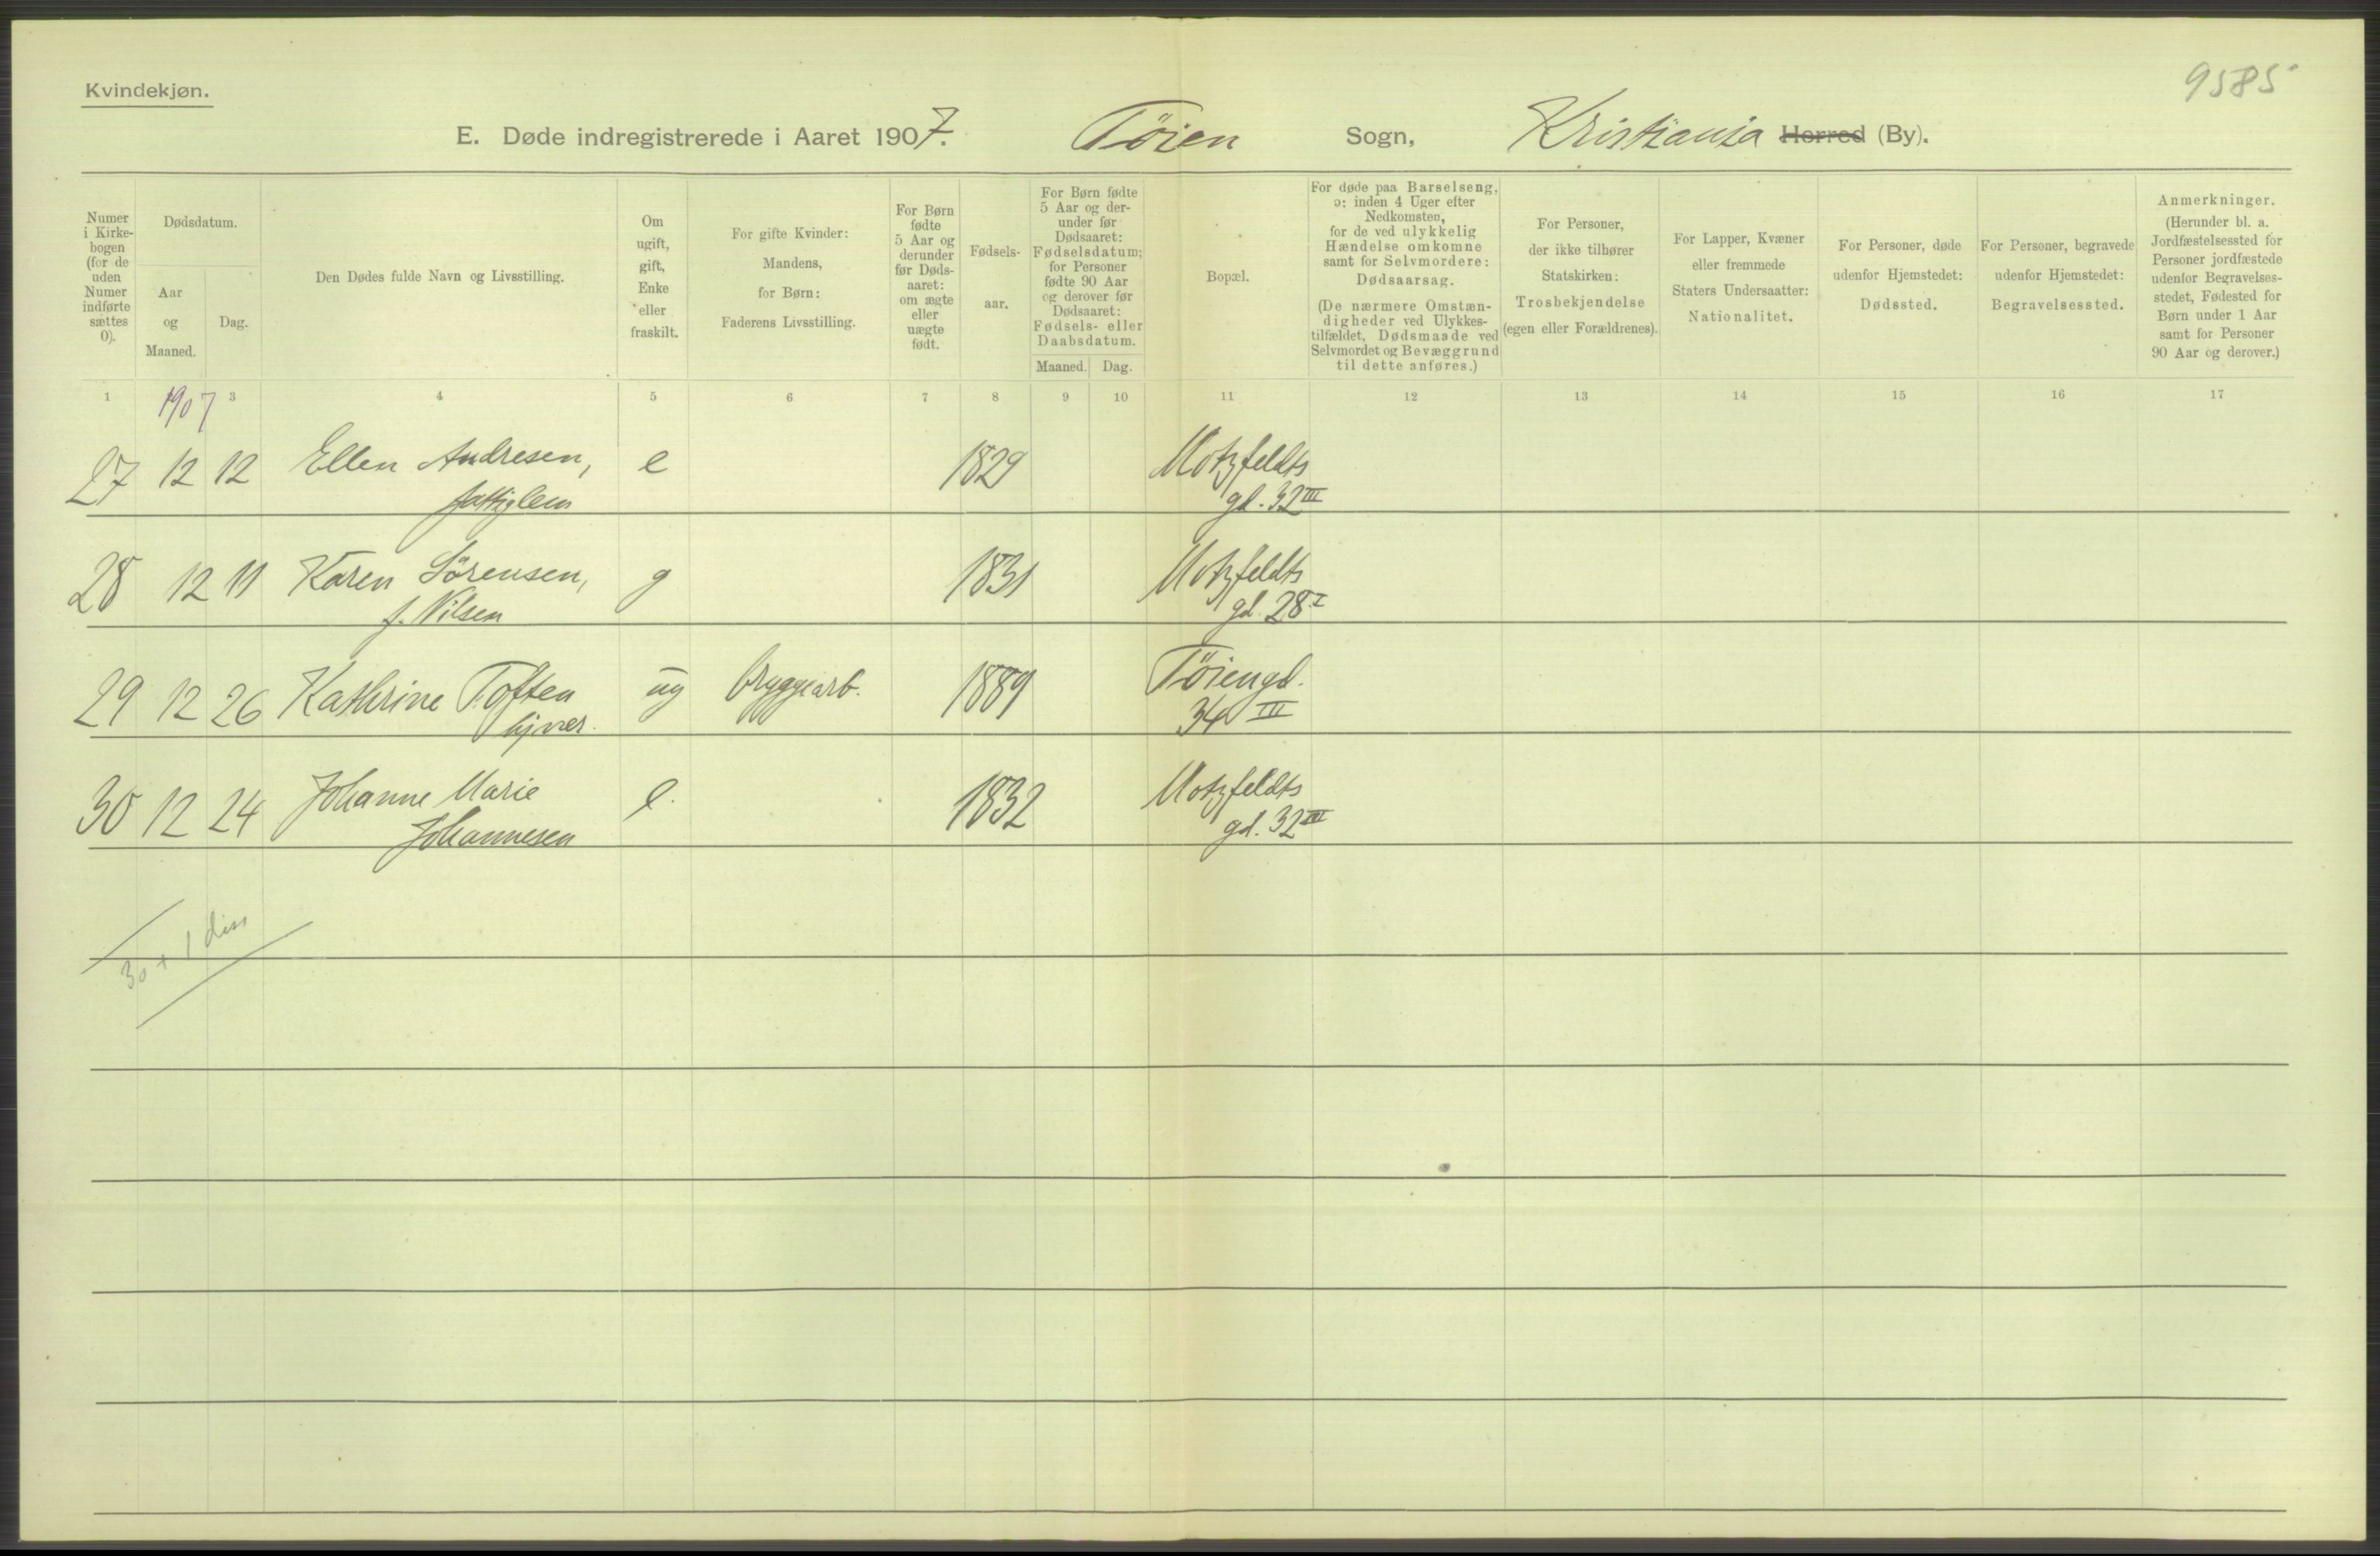 Kvindekjøn.
9585
E. Døde indregistrerede i Aaret 1907. Töien Sogn, Kristiania Herred (By).
Numer i Kirke-bogen (for de uden Numer indførte sættes 0).
Dødsdatum.
Aar og Maaned.
Dag.
Den Dødes fulde Navn og Livsstilling.
Om ugift, gift, Enke eller fraskilt.
For gifte Kvinder: Mandens, for Børn: Faderens Livsstilling.
For Børn fødte 5 Aar og derunder før Døds-aaret: om ægte eller uægte født.
Fødsels-aar.
For Børn fødte 5 Aar og der-under før Dødsaaret: Fødselsdatum; for Personer fødte 90 Aar og derover før Dødsaaret: Fødsels- eller Daabsdatum.
Maaned. Dag.
Bopæl.
For døde paa Barselseng, ɔ: inden 4 Uger efter Nedkomsten, for de ved ulykkelig Hændelse omkomne samt for Selvmordere: Dødsaarsag.
(De nærmere Omstæn-digheder ved Ulykkes-tilfældet, Dødsmaade ved Selvmordet og Bevæggrund til dette anføres.)
For Personer, der ikke tilhører Statskirken: Trosbekjendelse (egen eller Forældrenes).
For Lapper, Kvæner eller fremmede Staters Undersaatter: Nationalitet.
For Personer, døde udenfor Hjemstedet: Dødssted.
For Personer, begravede udenfor Hjemstedet: Begravelsessted.
Anmerkninger. (Herunder bl. a. Jordfæstelsessted for Personer jordfæstede udenfor Begravelses-stedet, Fødested for Børn under 1 Aar samt for Personer 90 Aar og derover.)
1 3 4 5 6 7 8 9 10 11 12 13 14 15 16 17
1907
27 12 12 Ellen Andresen, e 1829 Motzfeldts
fattiglem gd. 32 III
28 12 11 Karen Sörensen, g 1831 Motzfeldts
f. Nilsen gd. 28 I
29 12 26 Kathrine Toften ug bryggearb. 1889 Töiengd.
hjvær. 34 III
30 12 24 Johanne Marie e. 1832 Motzfeldts
Johannesen gd. 32 III
30 + 1 diss